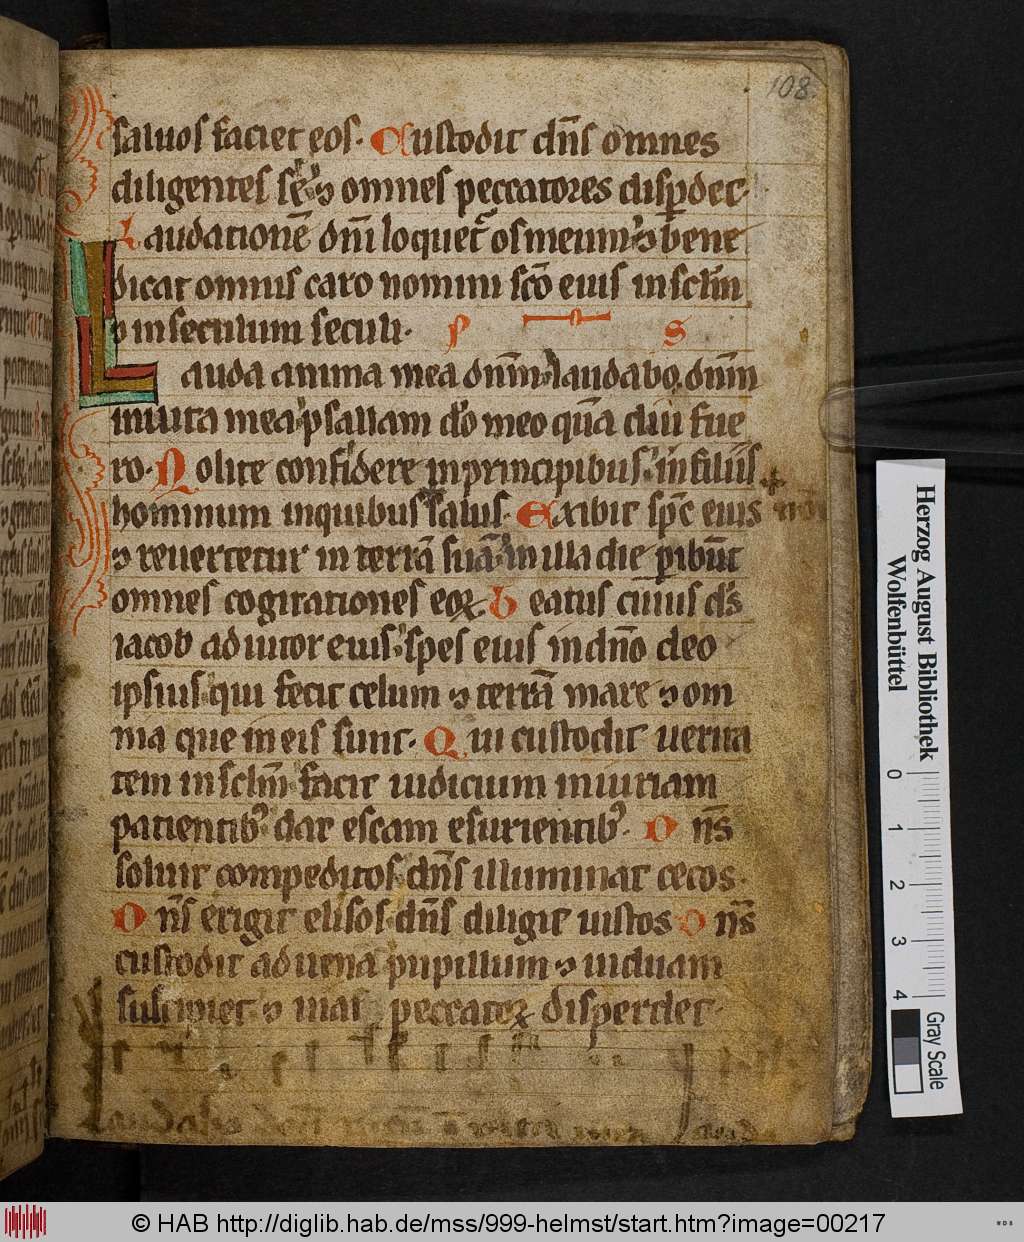 108.
saluos faciet eos. Custodit dn̄s omnes
diligentes se ⁊ omnes peccatores disp̱det.
Laudationē dnı̄ loquet᷑ os meum ⁊ bene
dicat omnis caro nomini sc̄o eius in sclm̄
⁊ in seculum seculi. P S
Lauda anima mea dnm̄ laudabo dnm̄
in uita mea psallam do̅ meo qua̅diu fue
ro. Nolite confidere in principibus. in filiis
hominum in quibus salus. Exibit sp̅c eius
⁊ reuertetur in terrā suā in illa die p̱ibūt
omnes cogitationes eoꝝ. beatus cuius ds̄
iacob adiutor eius spes eius in dn̄o deo
ipsius qui fecit celum ⁊ terrā mare ⁊ om
nia que in eis sunt. Qui custodit uerita
tem in sclm̄ facit iudicium iniuriam
patientibꝰ dat escam esurientibꝰ. Dn̄s
soluit compeditos dn̄s illuminat cecos.
Dn̄s erigit elisos dn̄s diligit iustos Dn̄s
custodit aduena pupillum ⁊ uiduam
suscipiet ⁊ uias peccatoꝝ disperdet.
Herzog August Bibliothek
Wolfenbüttel
0 1 2 3 4
Gray Scale
© HAB http://diglib.hab.de/mss/999-helmst/start.htm?image=00217